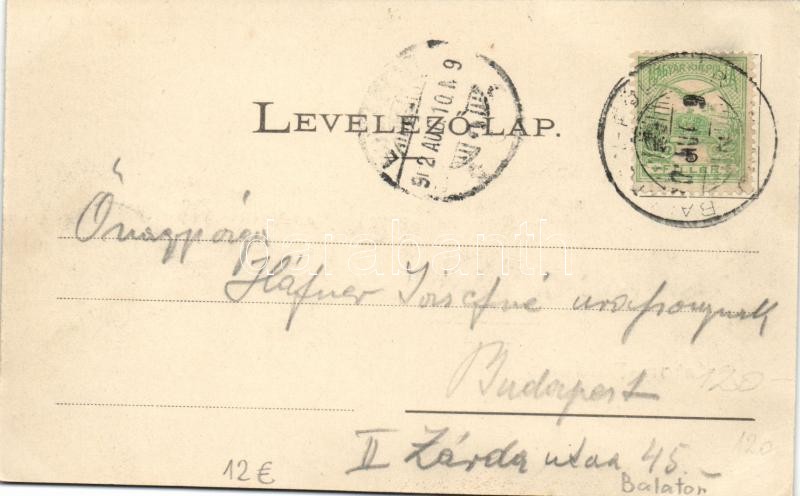 MAGYAR KIR. POSTA
FILLÉR
902 AUG 10 N 9
LEVELEZŐ-LAP.
darabanth
Őnagysága
Háfner Józsefné urassonynak
Budapest
120-
II Zárda utca 45.
120
12 €
Balaton